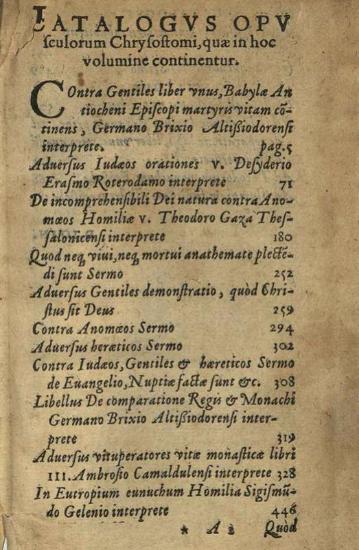 CATALOGVS OPV
ſculorum Chryſoſtomi, quæ in hoc
volumine continentur.
Contra Gentiles liber vnus, Babylæ An
tiocheni Epiſcopi martyris vitam cō-
tinens, Germano Brixio Altiſsiodorenſi
interprete. pag. 5
Adverſus Iudæos orationes v. Deſyderio
Eraſmo Roterodamo interprete 71
De incomprehenſibili Dei natura contra Ano-
mœos Homiliæ v. Theodoro Gaza Theſ-
ſalonicenſi interprete 180
Quod neq; viui, neq; mortui anathemate plectē-
di ſunt Sermo 252
Adverſus Gentiles demonſtratio, quòd Chri-
ſtus ſit Deus 259
Contra Anomœos Sermo 294
Adverſus hæreticos Sermo 302
Contra Iudæos, Gentiles & hæreticos Sermo
de Euangelio, Nuptiæ factæ ſunt &c. 308
Libellus De comparatione Regis & Monachi
Germano Brixio Altiſsiodorenſi inter-
prete 319
Adverſus vituperatores vitæ monaſticæ libri
III. Ambroſio Camaldulenſi interprete 328
In Eutropium eunuchum Homilia Sigiſmū-
do Gelenio interprete 446
* A 2 Quòd